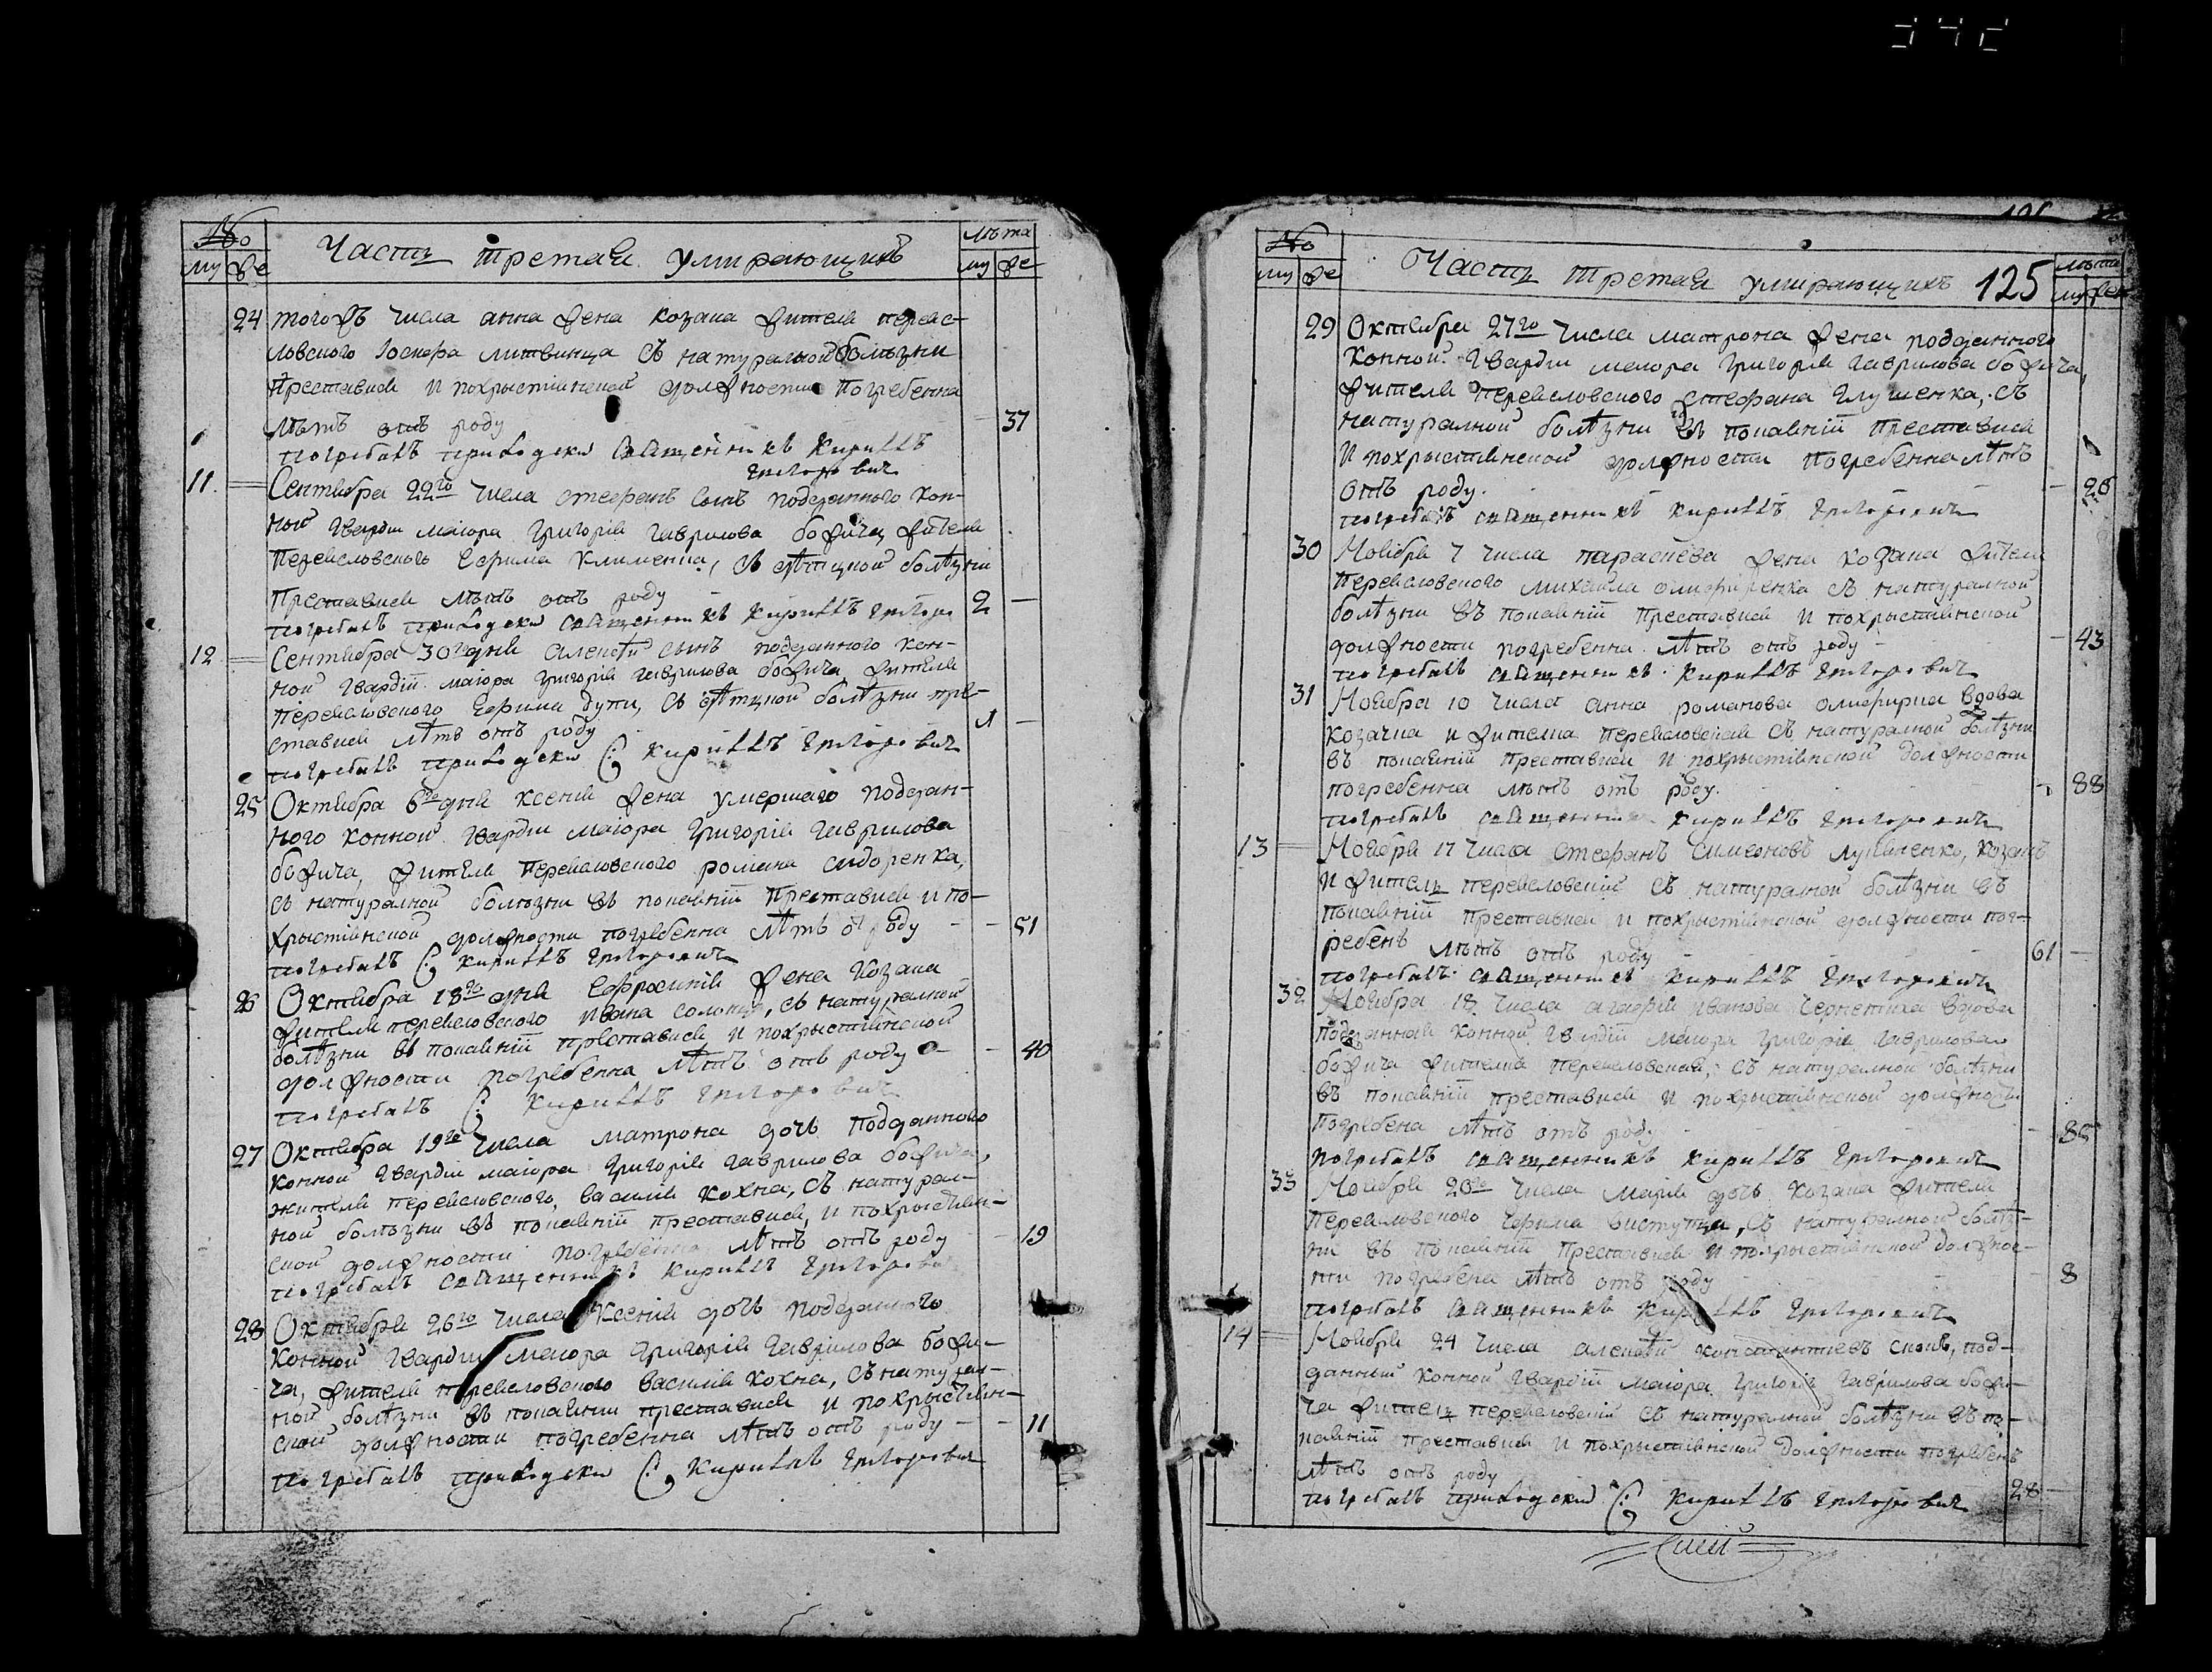 №
Часть третая умирающихъ
лѣта
му же
му же
24 тогожъ числа анна жена козака жителя переяс-
ловского Іосифа литвинца съ натуралной болѣзни
преставися и похрыстіянской должности погребенна
лѣтъ отъ роду 37
погребалъ приходски священникъ Кириллъ
Григорович
11 Сентября 22го числа стефанъ сынъ подданного кон-
ной гвардіи маіора Григорія Гаврилова божича жителя
Переясловского Ефима Клименка, съ дѣтцкой болѣзни
преставися лѣтъ отъ роду 2
погребалъ приходски священникъ Кириллъ Григоро
12 Сентября 30го дня алексѣй сынъ подданного кон-
ной гвардіи маіора григорія гаврилова божича жителя
Переясловского Ефима съ дѣтцкой болѣзни пре-
ставися лѣтъ отъ роду 1
погребалъ приходски С: Кириллъ Григорович
25 Октября 6го дня ксенія жена умершаго поддан-
ного конной гвардіи маіора Григорія Гаврилова
божича, жителя Переясловского романа сидоренка,
съ натуралной болѣзни въ покаяніи преставися и по-
хрыстіянской должности погребенна лѣтъ от роду 51
погребалъ С: Кириллъ Григорович
26 Октября 18го дня Ефросинія жена козака
жителя переясловского ивана съ натуралной
болѣзни въ покаяніи преставися и похрыстіянской
должности погребенна лѣтъ отъ роду 40
погребалъ С: Кириллъ Григорович
27 Октября 19го числа матрона дочь подданного
конной гвардіи маіора григорія гаврилова божича,
жителя переясловского, василія кохна, съ натурал-
ной болѣзни въ покаяніи преставися, и похрыстіян-
ской должности погребенна лѣтъ отъ роду 19
погребалъ священникъ Кириллъ Григорови
28 Октября 26го числа Ксенія дочь подданного
конной гвардіи маіора григорія гаврилова божи-
ча, жителя переясловского василія кохна, съ натурал-
ной болѣзни въ покаяніи преставися и похрыстіян-
ской должности погребенна лѣтъ отъ роду 11
погребалъ приходски С: Кириллъ Григорович
№
Часть третая умирающихъ 125
лѣта
му же
му же
29 Октября 27го числа матрона жена подданного
конной гвардіи маіора григорія гаврилова божича,
жителя переясловского стефана глущенка, съ
натуралной болѣзни въ покаяніи преставися
и похрыстіянской должности погребенна лѣтъ
отъ роду 26
погребалъ священникъ Кириллъ Григорович
30 Ноября 7 числа параскева жена козака жителя
переясловского михаила олефиренка съ натуралной
болѣзни въ покаяніи преставися и похрыстіянской
должности погребенна лѣтъ отъ роду 43
погребалъ священникъ Кириллъ Григорович
31 Ноября 10 числа анна романова олефирка вдова
козачка и жителка переясловская съ натуралной болѣзни
въ покаяніи преставися и похрыстіянской должности
погребенна лѣтъ отъ роду 88
погребалъ священник Кириллъ Григорович
13 Ноября 17 числа стефанъ симеоновъ козакъ
и житель переясловскій съ натуралной болѣзни въ
покаяніи преставися и похрыстіянской должности пог-
ребенъ лѣтъ отъ роду 61
погребалъ священникъ Кириллъ Григорович
32 Ноября 18 числа агафія иванова вдова
подданная конной гвардіи маіора григорія гаврилова
божича жителка переясловская, съ натуралной болѣзни
въ покаяніи преставися и похрыстіянской должности
погребена лѣтъ отъ роду 85
погребалъ священникъ Кириллъ Григорович
33 Ноября 20го числа марія дочь козака жителя
переясловского Ефима съ натуралной болѣз-
ни въ покаяніи преставися и похрыстіянской должнос-
ти погребена лѣтъ отъ роду 8
погребалъ священникъ Кириллъ Григорович
14 Ноября 24 числа алексѣй константиевъ под-
данный конной гвардіи маіора григорія гаврилова божи-
ча житель переясловскій съ натуралной болѣзни въ по-
каяніи преставися и похрыстіянской должности погребенъ
лѣтъ отъ роду 28
погребалъ приходскій С: Кириллъ Григорович